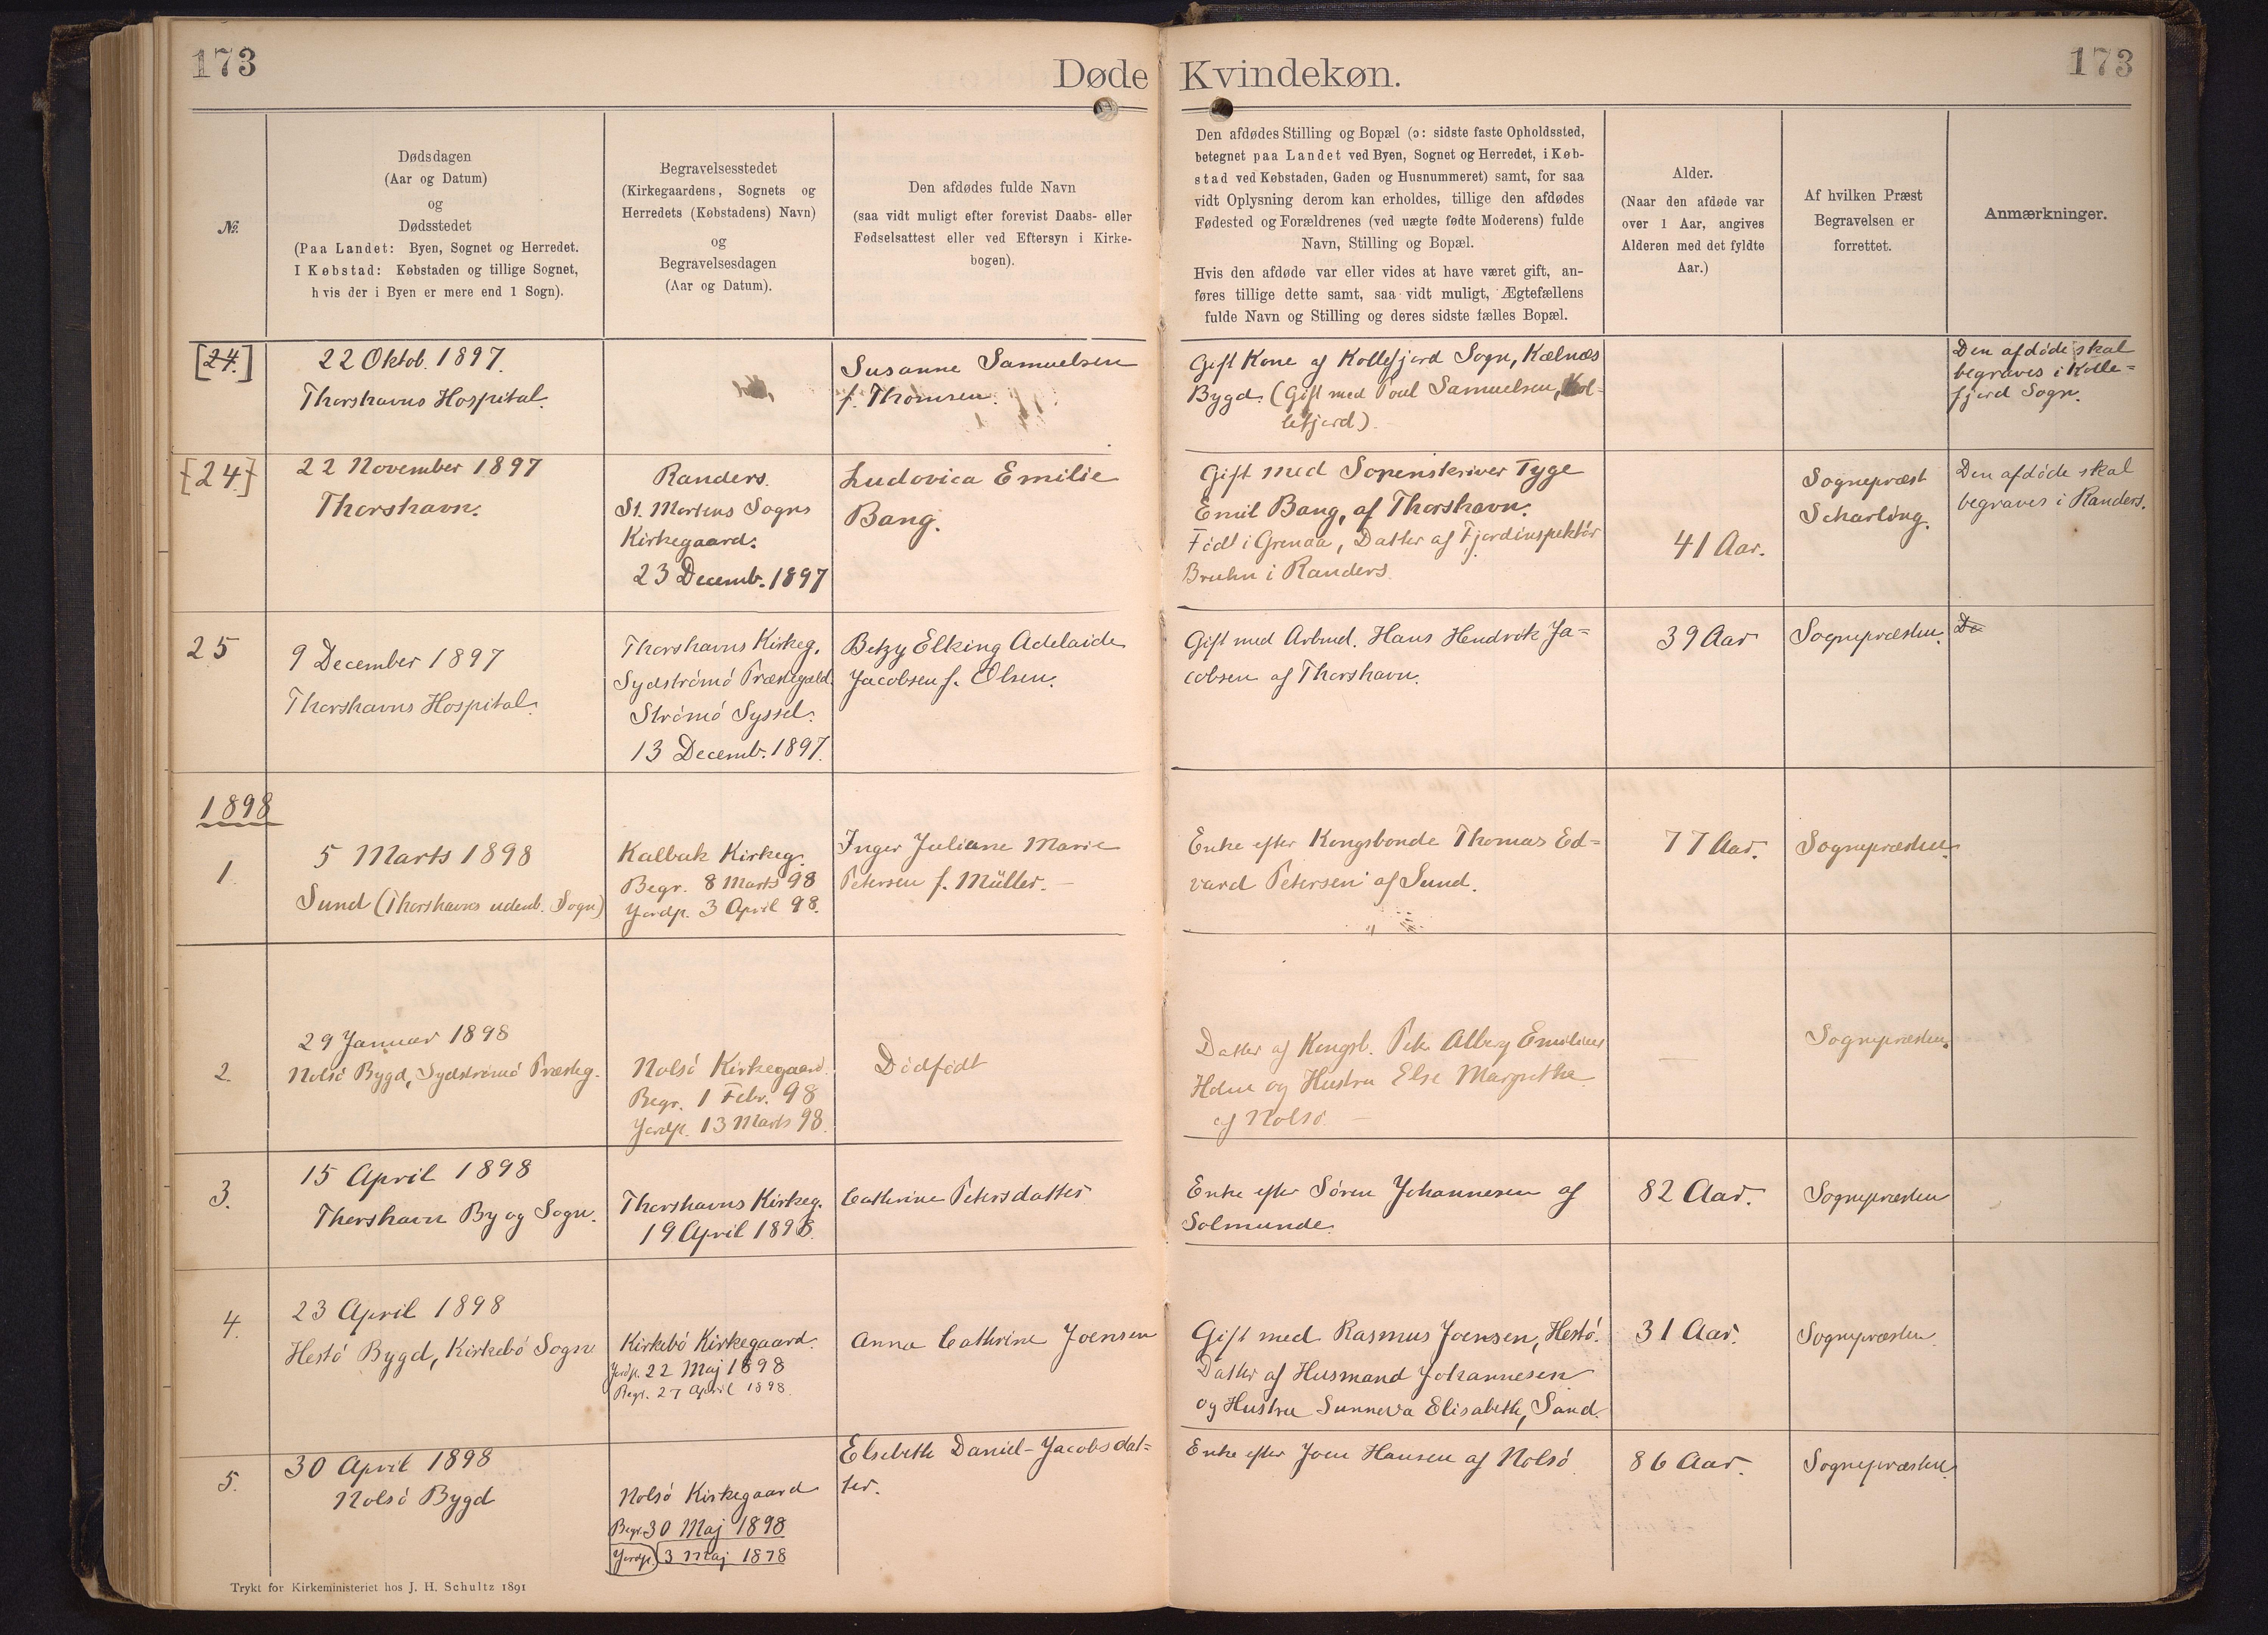 173
Døde Kvindekøn.
173
№
Dødsdagen
(Aar og Datum)
og
Dødsstedet
(Paa Landet: Byen, Sognet og Herredet.
I Købstad: Købstaden og tillige Sognet,
hvis der i Byen er mere end 1 Sogn).
Begravelsesstedet
(Kirkegaardens, Sognets og
Herredets (Købstadens) Navn)
og
Begravelsesdagen
(Aar og Datum).
Den afdødes fulde Navn
(saa vidt muligt efter forevist Daabs- eller
Fødselsattest eller ved Eftersyn i Kirke-
bogen).
Den afdødes Stilling og Bopæl (ɔ: sidste faste Opholdssted,
betegnet paa Landet ved Byen, Sognet og Herredet, i Køb-
stad ved Købstaden, Gaden og Husnummeret) samt, for saa
vidt Oplysning derom kan erholdes, tillige den afdødes
Fødested og Forældrenes (ved uægte fødte Moderens) fulde
Navn, Stilling og Bopæl.
Hvis den afdøde var eller vides at have været gift, an-
føres tillige dette samt, saa vidt muligt, Ægtefællens
fulde Navn og Stilling og deres sidste fælles Bopæl.
Alder.
(Naar den afdøde var
over 1 Aar, angives
Alderen med det fyldte
Aar.)
Af hvilken Præst
Begravelsen er
forrettet.
Anmærkninger.
[24.]
22 Oktob. 1897.
Thorshavns Hospital.
Susanne Samuelsen
f. Thomsen.
Gift Kone af Kollefjord Sogn, Kælnæs
Bygd. (Gift med Poul Samuelsen, Kol-
lefjord)
Den afdöde skal
begraves i Kolle=
fjord Sogn.
[24.]
22 November 1897
Thorshavn.
Randers.
St. Mortens Sogns
Kirkegaard.
23 Decemb. 1897
Ludovica Emilie
Bang.
Gift med Sorenskriver Tyge
Emil Bang, af Thorshavn.
Födt i Grenaa, Datter af Fjordinspektör
Bruhn i Randers.
41 Aar.
Sognepræst
Scharling.
Den afdöde skal
begraves i Randers.
25
9 December 1897
Thorshavns Hospital.
Thorshavns Kirkeg.
Sydströmö Præstegæld.
Strömö Syssel.
13 Decemb. 1897.
Betzy Elking Adelaide
Jacobsen f. Olsen.
Gift med Arbmd. Hans Hendrik Ja=
cobsen af Thorshavn.
39 Aar
Sognepræsten.
De
1898
1.
5 Marts 1898
Sund (Thorshavns udenb. Sogn)
Kalbak Kirkeg.
Begr. 8 Marts 98
Jordp. 3 April 98.
Inger Juliane Marie
Petersen f. Müller. –
Enke efter Kongsbonde Thomas Ed=
vard Petersen af Sund.
77 Aar.
Sognepræsten.
2.
29 Januar 1898
Nolsö Bygd, Sydströmö Præsteg.
Nolsö Kirkegaard.
Begr. 1 Febr. 98
Jordp. 13 Marts 98.
Dödfödt
Datter af Kongsb. Peter Alberg Emilius
Holm og Hustru Else Margrethe
af Nolsö –
—
Sognepræsten.
3.
15 April 1898
Thorshavn By og Sogn.
Thorshavns Kirkeg.
19 April 1898.
Cathrine Petersdatter
Enke efter Sören Johannesen af
Solmunde.
82 Aar.
Sognepræsten
4.
23 April 1898
Hestö Bygd, Kirkebö Sogn
Kirkebö Kirkegaard.
Jordp. 22 Maj 1898
Begr. 27 April 1898.
Anna Cathrine Joensen
Gift med Rasmus Joensen, Hestö.
Datter af Husmand Johannesen
og Hustru Sunneva Elisabeth, Sand.
31 Aar.
Sognepræsten.
5.
30 April 1898
Nolsö Bygd
Nolsö Kirkegaard
Begr. 30 Maj 1898
Jordp. 3 Maj 1898
Elsebeth Daniel-Jacobsdat=
ter.
Enke efter Joen Hansen af Nolsö
86 Aar.
Sognepræsten.
Trykt for Kirkeministeriet hos J. H. Schultz 1891